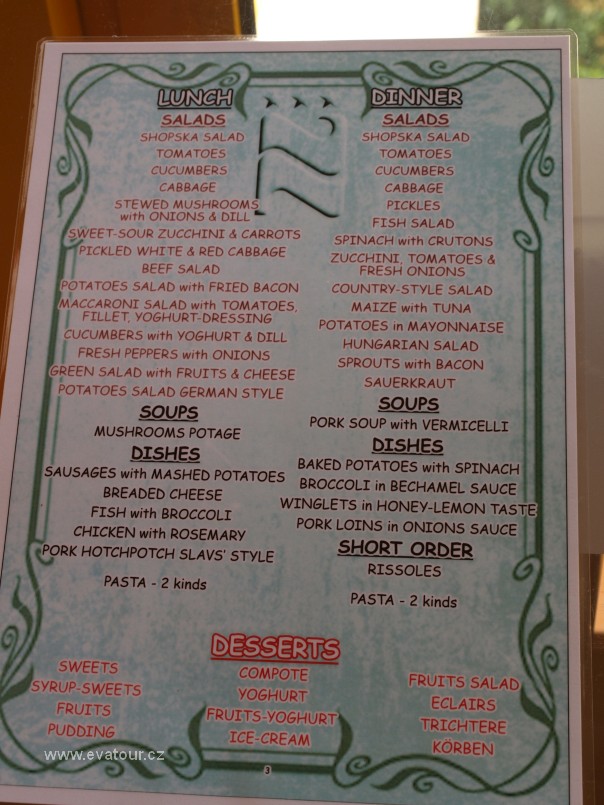 LUNCH
SALADS
SHOPSKA SALAD
TOMATOES
CUCUMBERS
CABBAGE
STEWED MUSHROOMS
with ONIONS & DILL
SWEET-SOUR ZUCCHINI & CARROTS
PICKLED WHITE & RED CABBAGE
BEEF SALAD
POTATOES SALAD with FRIED BACON
MACCARONI SALAD with TOMATOES,
FILLET, YOGHURT-DRESSING
CUCUMBERS with YOGHURT & DILL
FRESH PEPPERS with ONIONS
GREEN SALAD with FRUITS & CHEESE
POTATOES SALAD GERMAN STYLE
SOUPS
MUSHROOMS POTAGE
DISHES
SAUSAGES with MASHED POTATOES
BREADED CHEESE
FISH with BROCCOLI
CHICKEN with ROSEMARY
PORK HOTCHPOTCH SLAVS' STYLE
PASTA - 2 kinds
DINNER
SALADS
SHOPSKA SALAD
TOMATOES
CUCUMBERS
CABBAGE
PICKLES
FISH SALAD
SPINACH with CRUTONS
ZUCCHINI, TOMATOES &
FRESH ONIONS
COUNTRY-STYLE SALAD
MAIZE with TUNA
POTATOES in MAYONNAISE
HUNGARIAN SALAD
SPROUTS with BACON
SAUERKRAUT
SOUPS
PORK SOUP with VERMICELLI
DISHES
BAKED POTATOES with SPINACH
BROCCOLI in BECHAMEL SAUCE
WINGLETS in HONEY-LEMON TASTE
PORK LOINS in ONIONS SAUCE
SHORT ORDER
RISSOLES
PASTA - 2 kinds
DESSERTS
SWEETS
SYRUP-SWEETS
FRUITS
PUDDING
COMPOTE
YOGHURT
FRUITS-YOGHURT
ICE-CREAM
FRUITS SALAD
ECLAIRS
TRICHTERE
KÖRBEN
3
www.evatour.cz